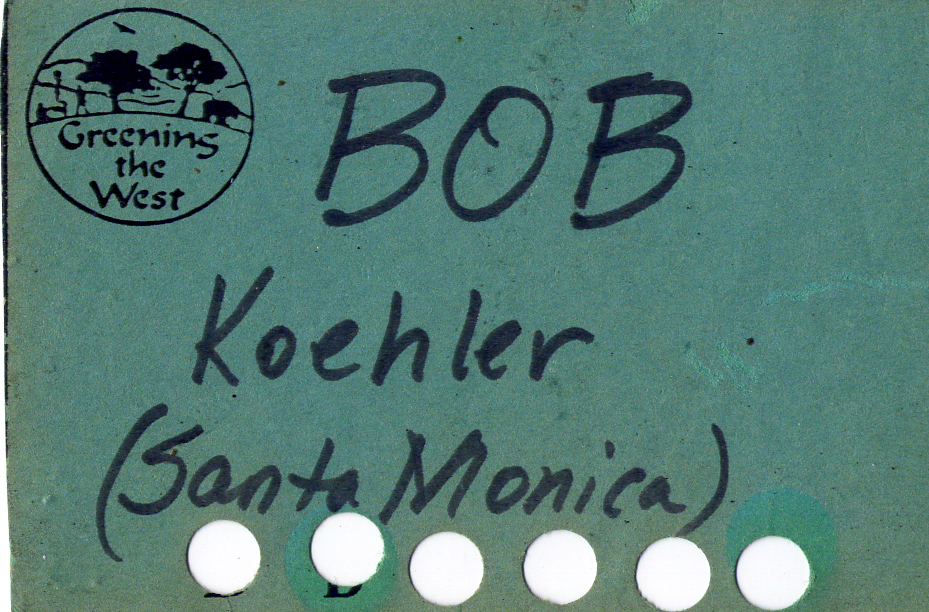 Greening
the
West
BOB
Koehler
(Santa Monica)